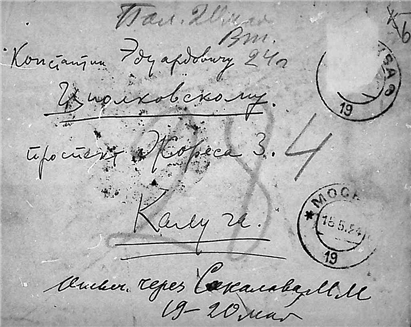 Пол. 24 мая
Вт.
24 г
Константину Эдуардовичу
Циолковскому.
проспект Жореса 3.
4
Калуга.
МОС
18.5.24
19
19
через Соколова М М
19-20 мая